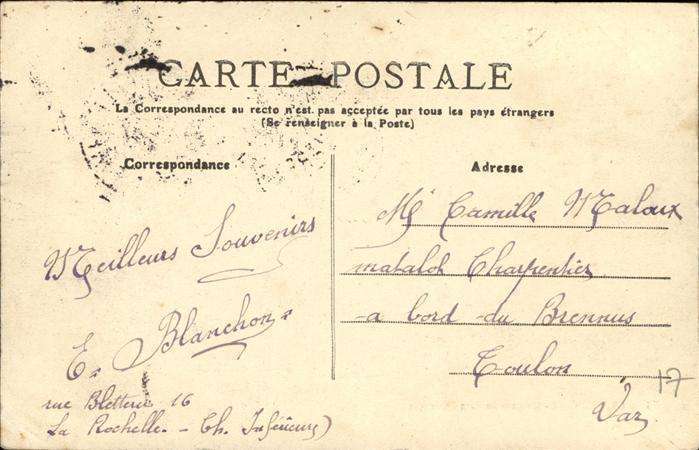 CARTE POSTALE
La Correspondance au recto n'est pas acceptée par tous les pays étrangers
(Se renseigner à la Poste)
Correspondance
Meilleurs Souvenirs
E. Blanchon
rue Bletterie 16
La Rochelle - Ch. Inférieure)
Adresse
Mr Camille Maloux
matalot Charpentier
a bord du Brennus
Toulon
Var
17